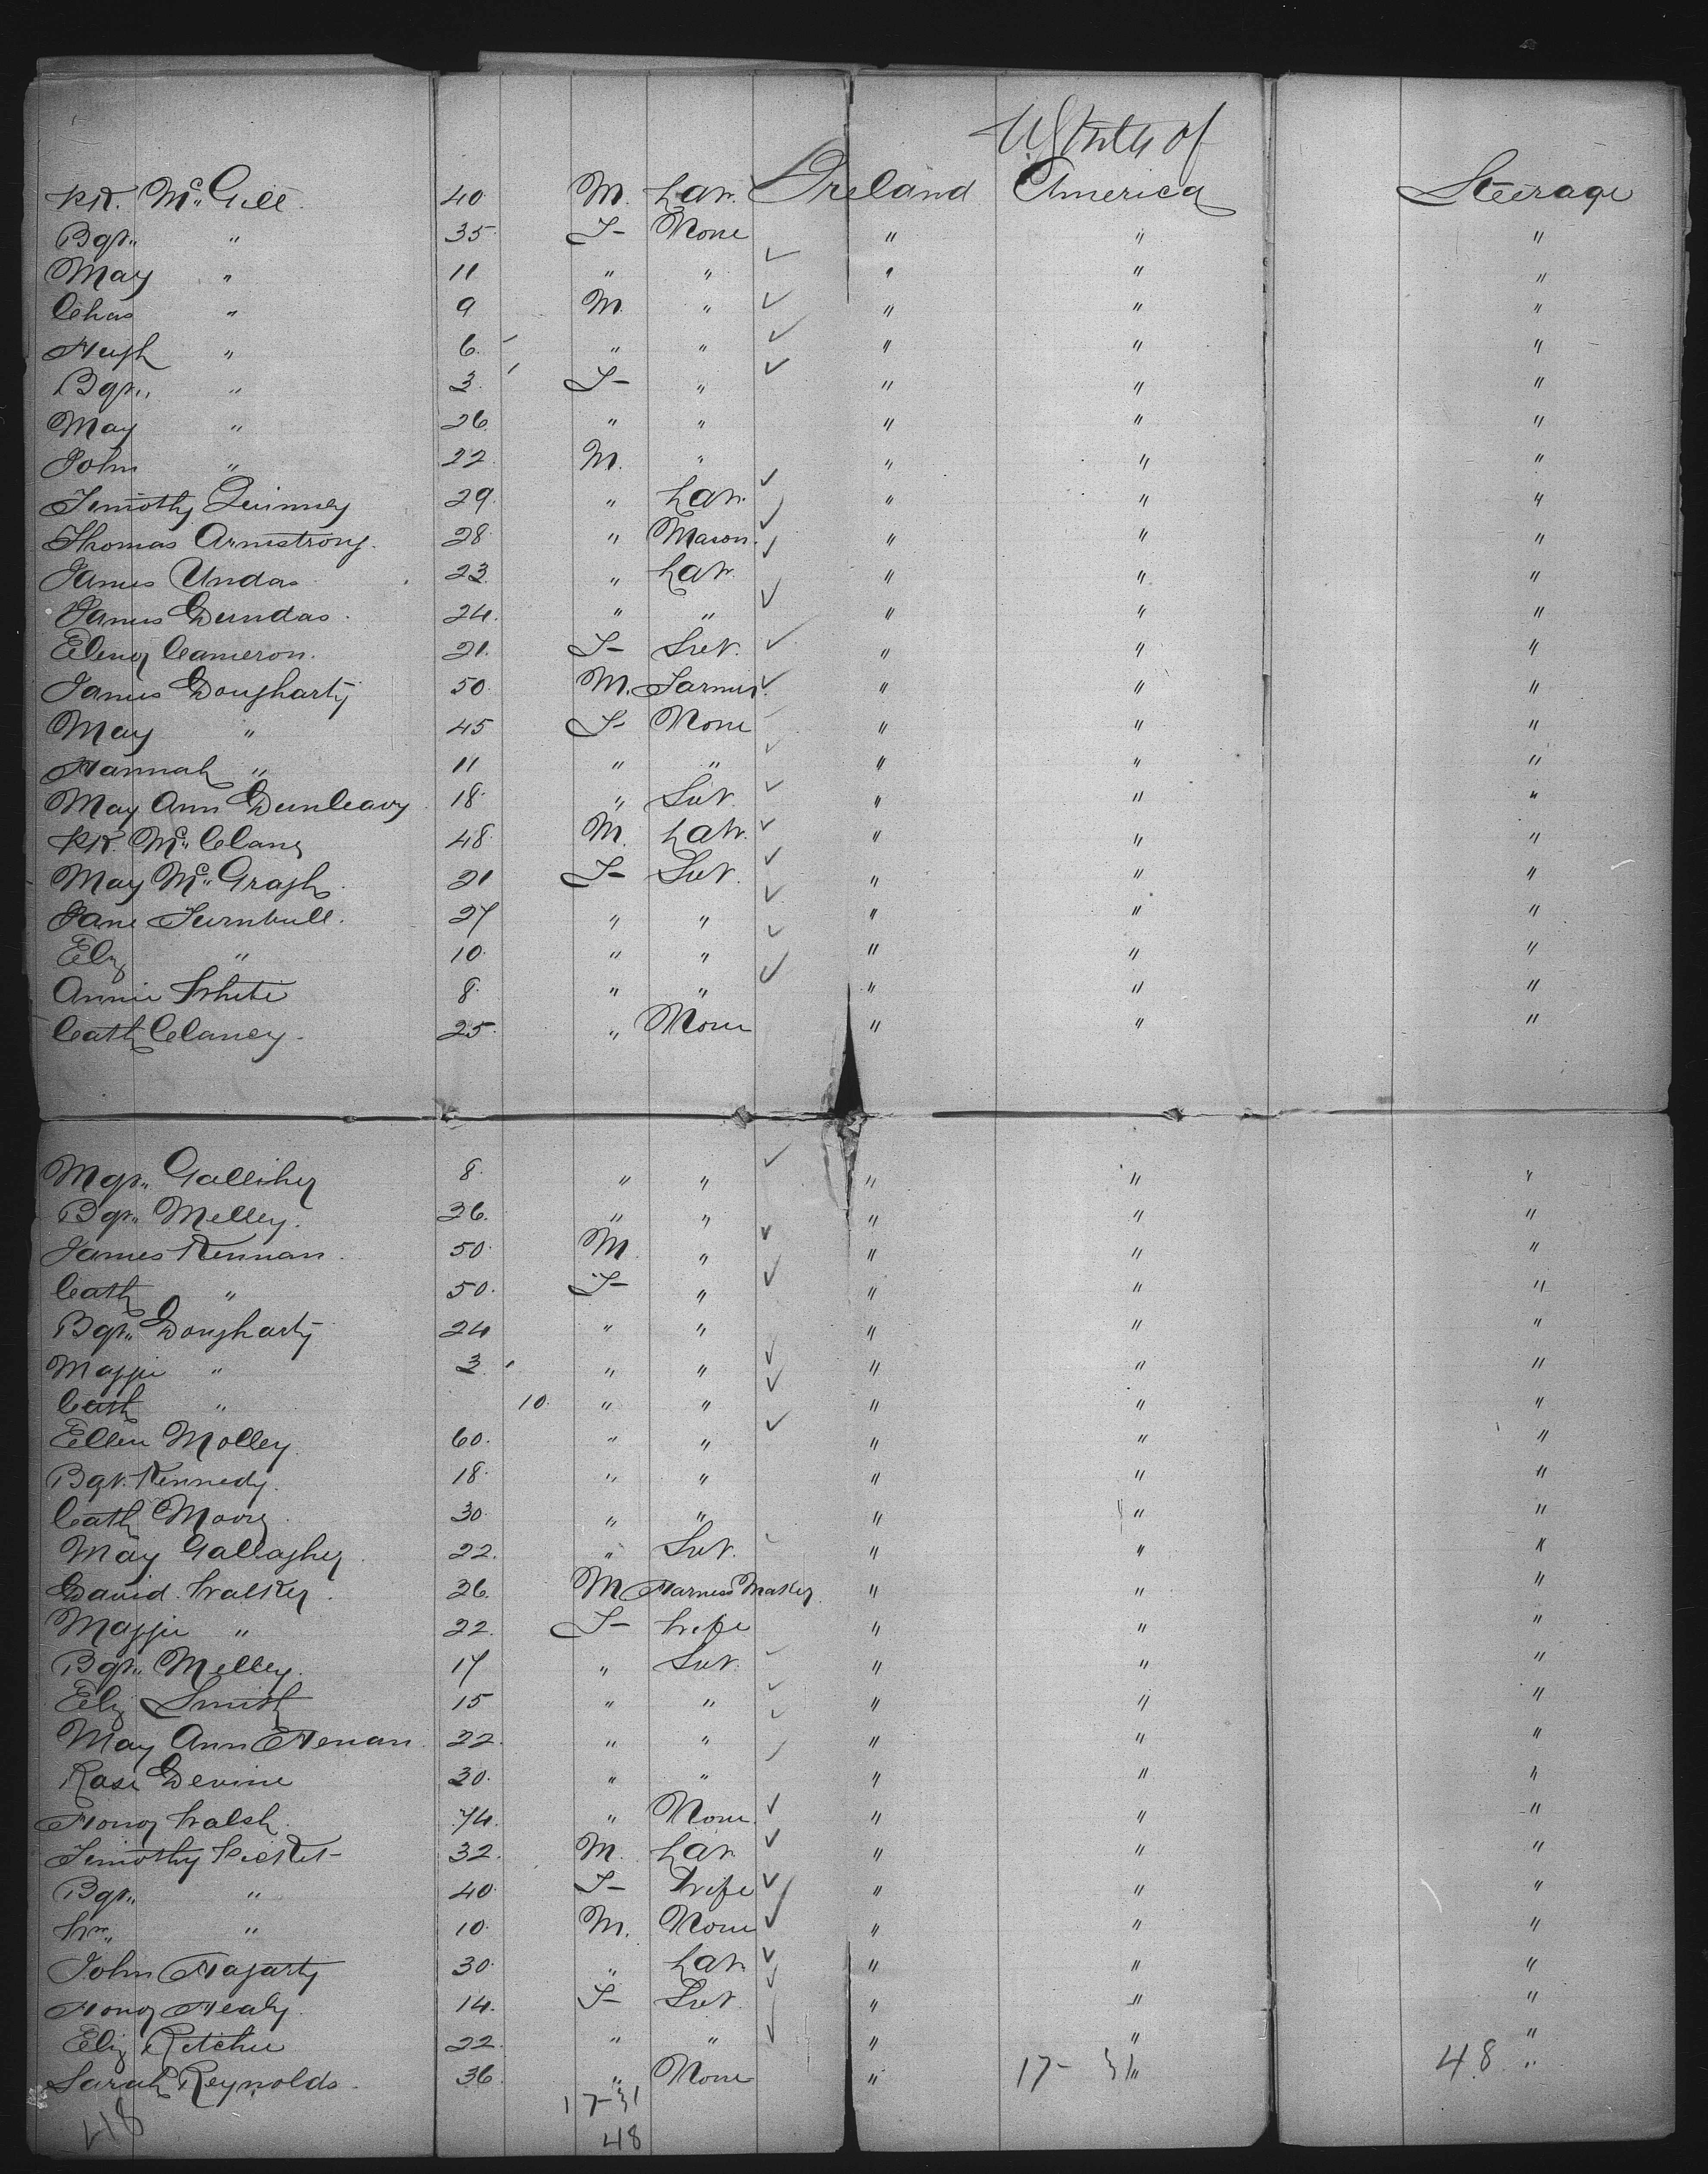 U. States of
PK. Mc. Gill 40 M. Lab. Ireland America Steerage
Bgt. " 35 F None " " "
May " 11 " " " " "
Chas " 9 M " " " "
Hugh " 6 " " " " "
Bgt. " 3 F " " " "
May " 26 " " " " "
John " 22 M. " " " "
Timothy Quinney 29 " Lab. " " "
Thomas Armstrong 28 " Mason " " "
James Undas 23 " Lab. " " "
James Dundas 24 " " " " "
Elenor Cameron 21 F Svt. " " "
James Dougharty 50 M. Farmer " " "
May " 45 F None " " "
Hannah " 11 " " " " "
May Ann Dunleavy 18 " Svt. " " "
PK. Mc. Clane 48 M. Lab. " " "
May Mc. Gragh 21 F Svt. " " "
Jane Turnbull 27 " " " " "
Eliz " 10 " " " " "
Annie White 8 " " " " "
Cath Clancy 25 " None " " "
Mgt. Galliher 8 " " " " "
Bgt. Melley 36 " " " " "
James Kennan 50 M " " " "
Cath " 50 F " " " "
Bgt. Dougharty 24 " " " " "
Maggie " 3 " " " " "
Cath " 10 " " " " "
Ellen Molley 60 " " " " "
Bgt. Kennedy 18 " " " " "
Cath Moore 30 " " " " "
May Gallagher 22 " Svt. " " "
David Walker 26 M Harness Maker " " "
Maggie " 22 F Wife " " "
Bgt. Melley 17 " Svt. " " "
Eliz Smith 15 " " " " "
May Ann Henan 22 " " " " "
Rose Devine 30 " " " " "
Honor Walsh 74 " None " " "
Timothy Picket 32 M. Lab " " "
Bgt. " 40 F Wife " " "
Wm. " 10 M. None " " "
John Hagarty 30 " Lab " " "
Honor Healy 14 F Svt. " " "
Eliz Ritchie 22 " " " " "
Sarah Reynolds 36 " None " 17-31 " 48 "
48 17-31
48